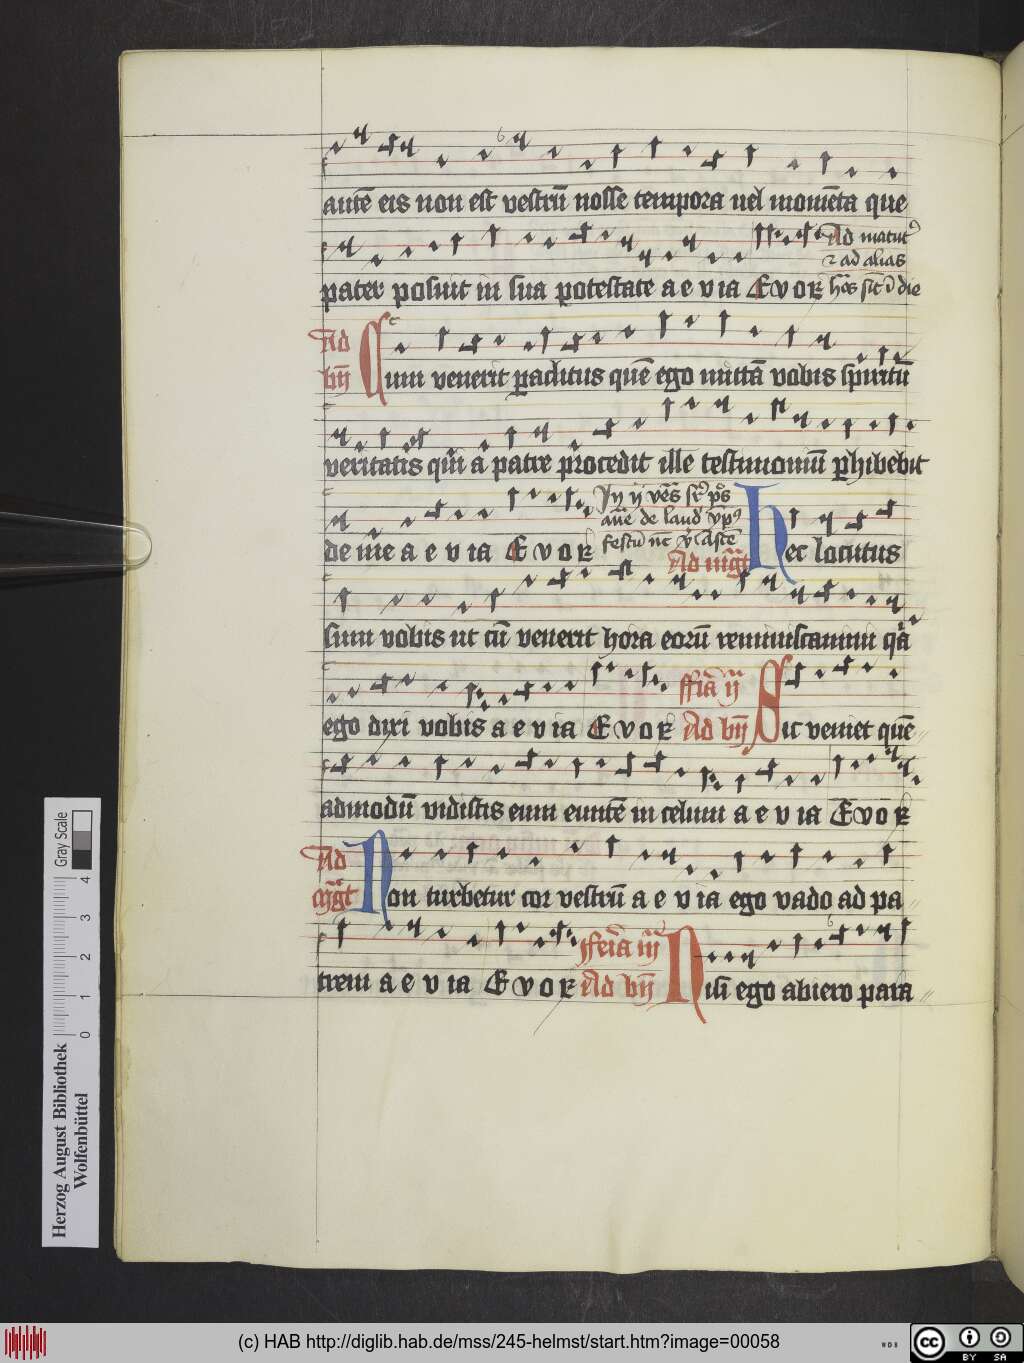 autē eis non est vestrū nosse tempora uel momēta que
pater posuit in sua potestate a e v ia E v o R
Ad matut᷑
⁊ ad alias
Ad
bn̄
Cum venerit paclitus quē ego mittā vobis spiritū
veritatis qui a patre procedit ille testimoniū phibebit
de me a e v ia E v o R
Ad mgt
Hec locutus
sum vobis ut cū venerit hora eorū reminiscamini qa
ego dixi vobis a e v ia E v o R
ffia ij
Ad bn̄
Sic veniet quē
admodū vidistis eum euntē in celum a e v ia E v o R
Ad
mgt
Non turbetur cor vestrū a e v ia ego vado ad pa
trem a e v ia E v o R
ffeia iij
Ad bn̄
Nisi ego abiero para
Gray Scale
4
3
2
1
0
Herzog August Bibliothek
Wolfenbüttel
(c) HAB http://diglib.hab.de/mss/245-helmst/start.htm?image=00058
WDB
cc
BY
SA